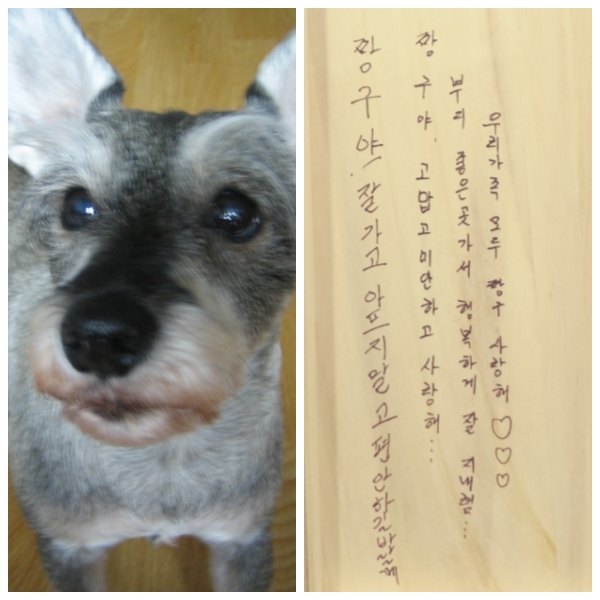 짱구야! 잘가고 아프지말고 편안하길바랄께
짱구야, 고맙고 미안하고 사랑해...
부디 좋은곳가서 행복하게 잘 지내렴...
우리가족 모두 짱구 사랑해 ♡♡♡